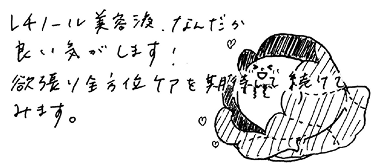 レチノール美容液、なんだか
良い気がします!
欲張り全方位ケアを期待して続けて
みます。